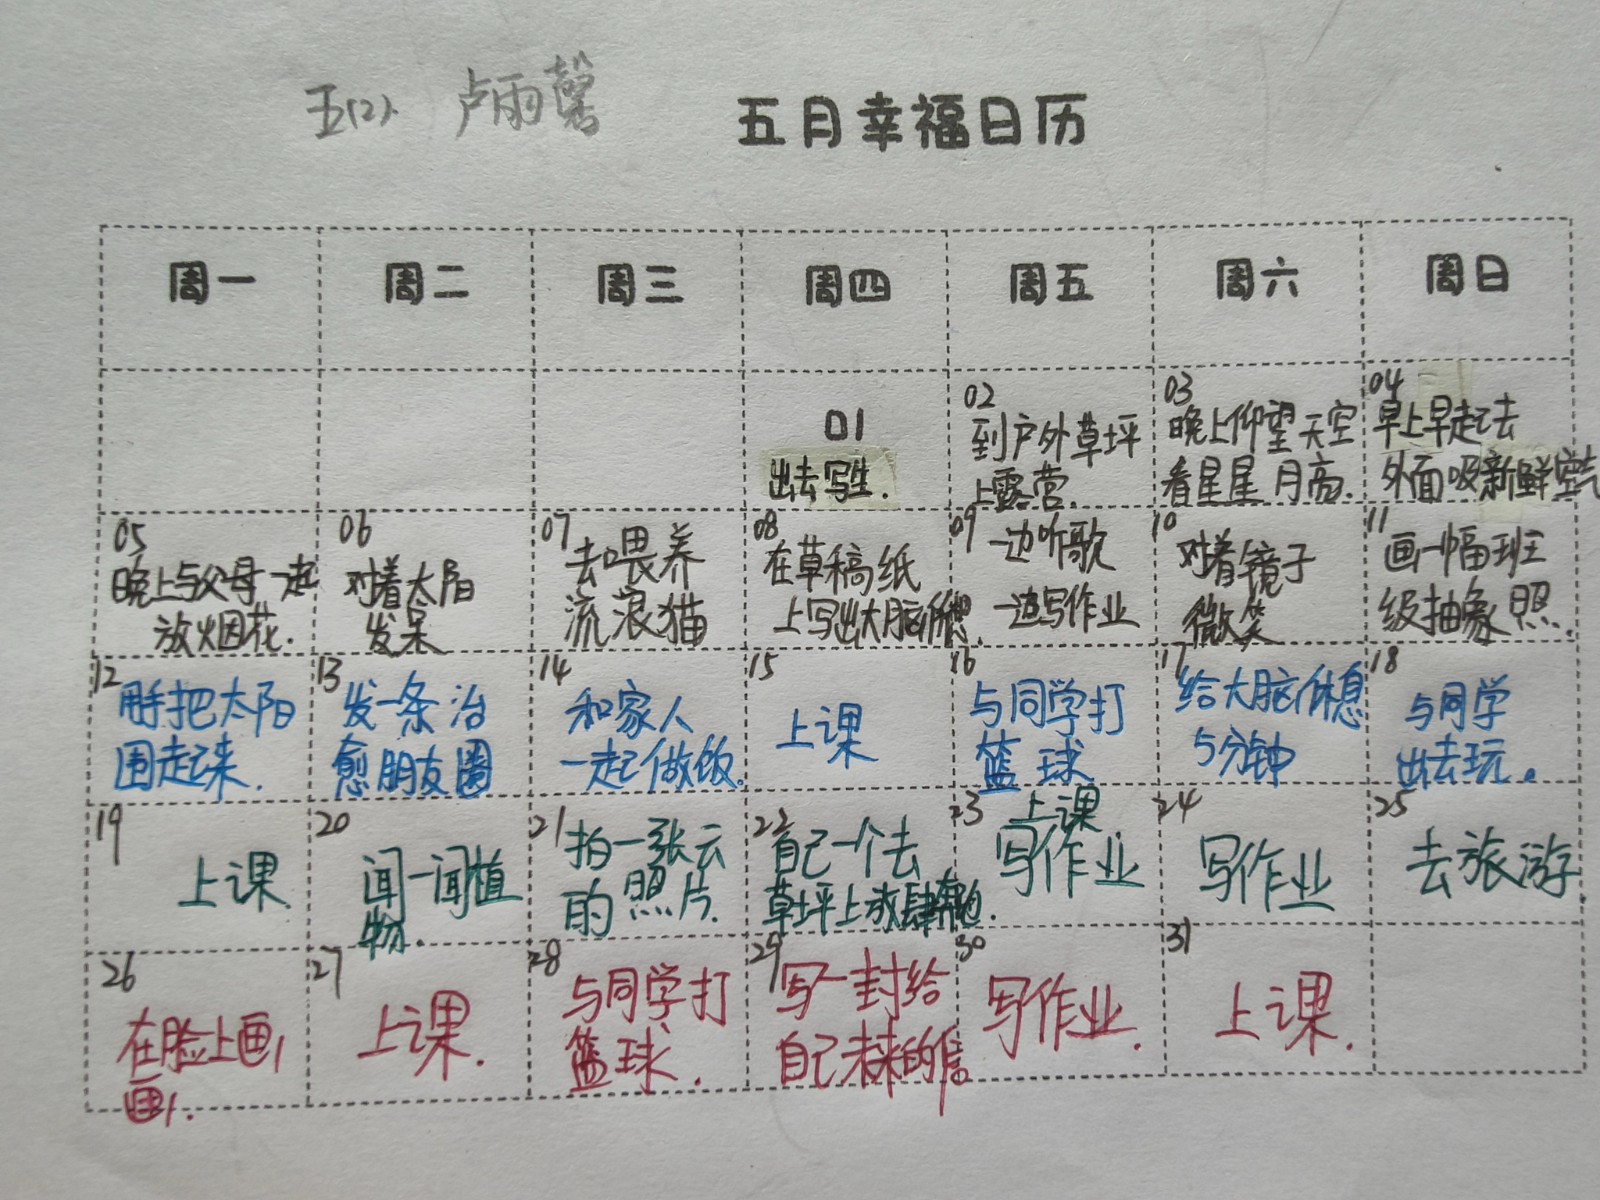 五(2). 卢雨馨
五月幸福日历
周一 周二 周三 周四 周五 周六 周日
01
出去写生.
02
到户外草坪
上露营.
03
晚上仰望天空
看星星 月亮.
04
早上早起去
外面吸新鲜空气
05
晚上与父母一起
放烟花.
06
对着太阳
发呆
07
去喂养
流浪猫
08
在草稿纸
上写出大脑所想.
09
一边听歌
一边写作业
10
对着镜子
微笑
11
画一幅班
级抽象照.
12
用手把太阳
围起来.
13
发一条治
愈朋友圈
14
和家人
一起做饭.
15
上课
16
与同学打
篮球
17
给大脑休息
5分钟
18
与同学
出去玩。
19
上课
20
闻一闻植
物.
21
拍一张云
的照片.
22
自己一个去
草坪上放肆奔跑.
23
上课
写作业
24
写作业
25
去旅游
26
在脸上画1
画1.
27
上课.
28
与同学打
篮球.
29
写一封给
自己未来的信。
30
写作业.
31
上课.